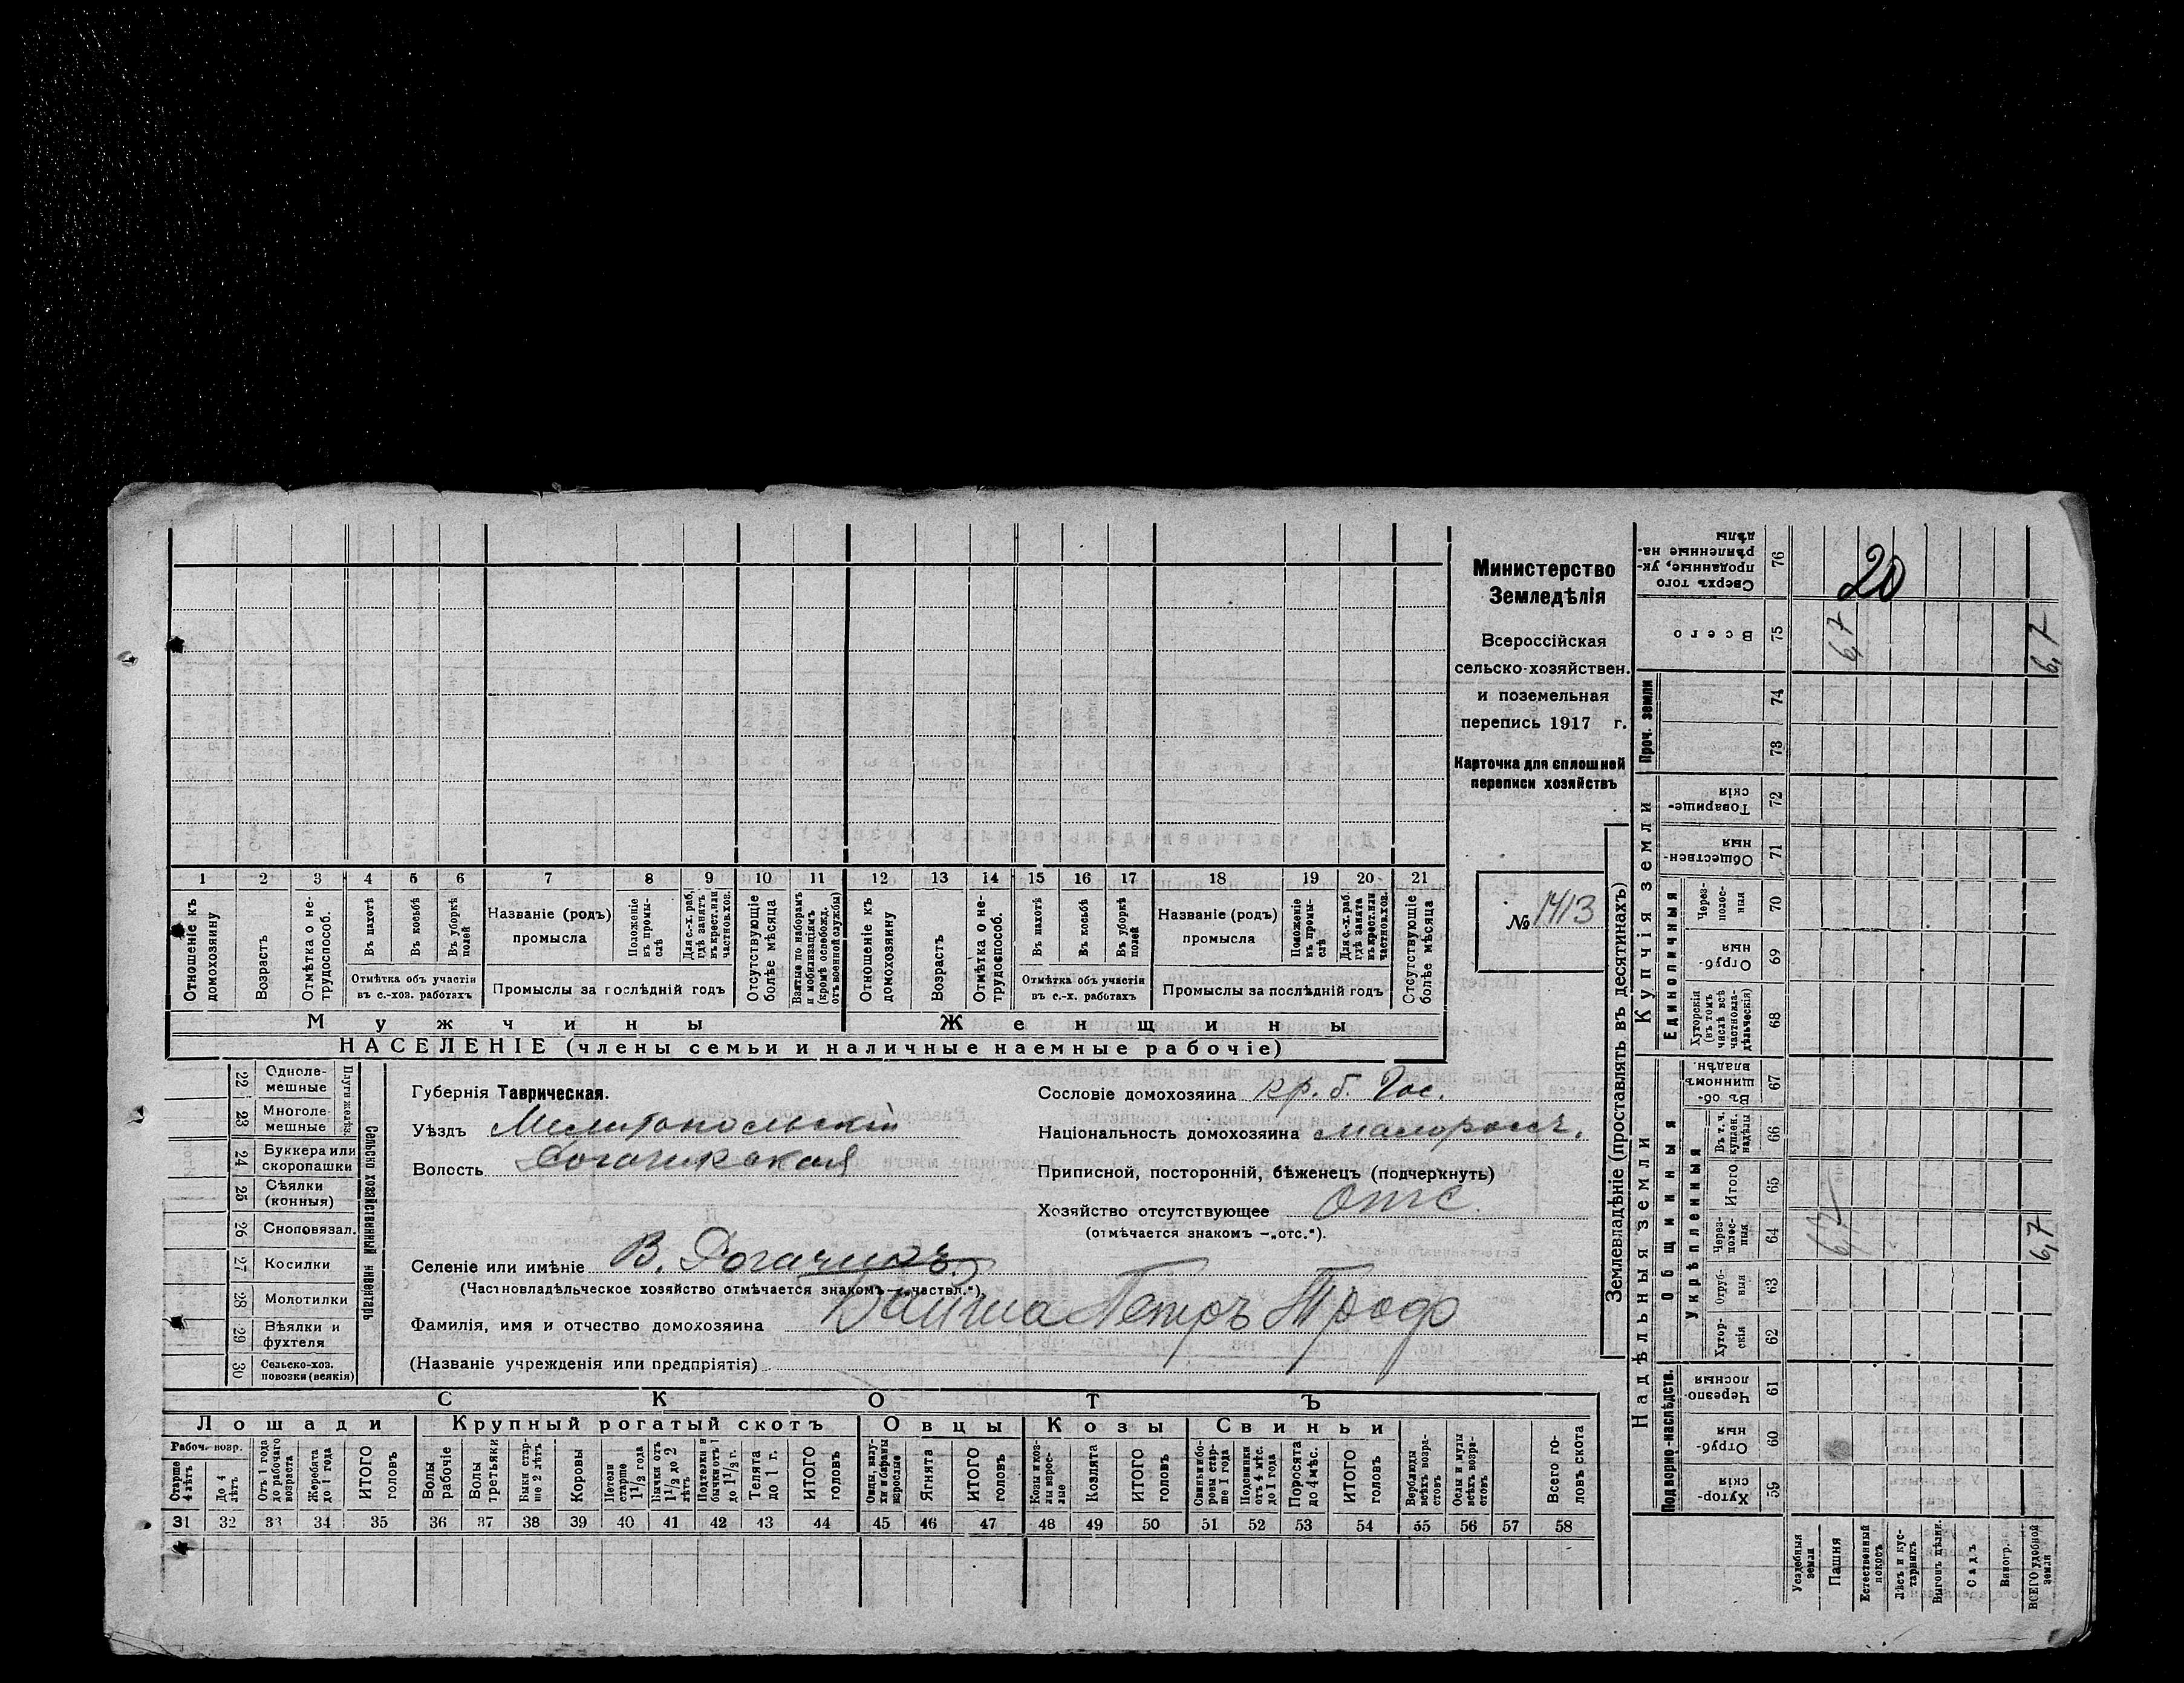 Министерство
Земледѣлія
Всероссійская
сельско-хозяйствен.
и поземельная
перепись 1917 г.
Карточка для сплошной
переписи хозяйствъ
№ 1413
1 2 3 4 5 6 7 8 9 10 11 12 13 14 15 16 17 18 19 20 21
Отношеніе къ домохозяину
Возрастъ
Отмѣтка о нетрудоспособ.
Въ пахотѣ
Въ косьбѣ
Въ уборкѣ полей
Отмѣтка объ участіи
въ с.-хоз. работахъ
Названіе (родъ)
промысла
Положеніе въ промыслѣ
Для с.-х. раб. гдѣ занятъ въ крест. или частнов. хоз.
Промыслы за послѣдній годъ
Отсутствующіе болѣе мѣсяца
Взятые по наборамъ и мобилизаціямъ (кромѣ освобожд. отъ военной службы)
Отношеніе къ домохозяину
Возрастъ
Отмѣтка о нетрудоспособ.
Въ пахотѣ
Въ косьбѣ
Въ уборкѣ полей
Отмѣтка объ участіи
въ с.-х. работахъ
Названіе (родъ)
промысла
Положеніе въ промыслѣ
Для с.-х. раб. гдѣ занята въ крест. или частнов. хоз.
Промыслы за послѣдній годъ
Отсутствующіе болѣе мѣсяца
Мужчины Женщины
НАСЕЛЕНІЕ (члены семьи и наличные наемные рабочіе)
22 Однолемешные
23 Многолемешные
Плуги желѣз.
24 Буккера или скоропашки
25 Сѣялки (конныя)
26 Сноповязал.
27 Косилки
28 Молотилки
29 Вѣялки и фухтеля
30 Сельско-хоз. повозки (всякія)
Сельско хозяйственный инвентарь
Губернія Таврическая.
Уѣздъ Мелитопольскій
Волость Рогачикская
Селеніе или имѣніе В. Рогачикъ
(Частновладѣльческое хозяйство отмѣчается знакомъ —„частвл.“)
Фамилія, имя и отчество домохозяина Петръ Троф
(Названіе учрежденія или предпріятія)
Сословіе домохозяина кр. б. Гос.
Національность домохозяина малоросс.
Приписной, посторонній, бѣженецъ (подчеркнуть)
Хозяйство отсутствующее отс.
(отмѣчается знакомъ —„отс.“).
СКОТЪ
Лошади Крупный рогатый скотъ Овцы Козы Свиньи
Рабоч. возр.
Старше 4 лѣтъ
До 4 лѣтъ
Отъ 1 года до рабочаго возраста
Жеребята до 1 года
ИТОГО головъ
Волы рабочіе
Волы третьяки
Быки старше 2 лѣтъ
Коровы
Нетели старше 1 1/2 года
Бычки отъ 1 1/2 до 2 лѣтъ
Подтелки и бычки отъ 1 до 1 1/2 г.
Телята до 1 г.
ИТОГО головъ
Овцы, валухи и бараны взрослые
Ягнята
ИТОГО головъ
Козы и козлы взрослые
Козлята
ИТОГО головъ
Свиньи и боровы старше 1 года
Подсвинки отъ 4 мѣс. до 1 года
Поросята до 4 мѣс.
ИТОГО головъ
Верблюды всѣхъ возрастовъ
Ослы и мулы всѣхъ возрастовъ
Всего головъ скота
31 32 33 34 35 36 37 38 39 40 41 42 43 44 45 46 47 48 49 50 51 52 53 54 55 56 57 58
Землевладѣніе (проставлять въ десятинахъ)
Надѣльныя земли
Купчія земли
Проч. земли
Подворно-наслѣдств.
Общинныя
Укрѣпленныя
Единоличныя
Хуторскія 59
Отрубныя 60
Черезполосныя 61
Хуторскія 62
Отрубныя 63
Черезполосныя 64
Итого 65
Въ т. ч. куплен. надѣлы 66
Въ общинномъ владѣн. 67
Хуторскія (въ томъ числѣ всѣ частновладѣльческія) 68
Отрубныя 69
Черезполосныя 70
Общественныя 71
Товарищескія 72
73
74
Всего 75
Сверхъ того проданные, укрѣпленные надѣлы 76
Усадебныя земли
Пашня
Естественный покосъ
Лѣсъ и кустарникъ
Выгонъ цѣлин.
Садъ
Виногр.
ВСЕГО удобной земли
20
6,7
6,7
6,7
6,7